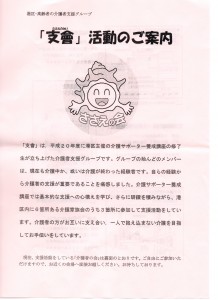 港区・高齢者の介護者支援グループ
「支會」活動のご案内
ささえの会
「支會」は、平成20年度に港区主催の介護サポーター養成講座の修了
生が立ち上げた介護者支援グループです。グループの殆んどのメンバー
は、現在も介護中か、或いは介護が終わった経験者です。自らの経験から
介護者の支援が重要であることを痛感しました。介護サポーター養成
講座では基本的な支援への心構えを学び、さらに研鑽を積みながら、港
区内に
介護者の方がお互いに支え合い、一人で抱え込まない介護を目指
してお手伝いをしています。
現在、支援活動をしている「介護者の会」は裏面のとおりです。